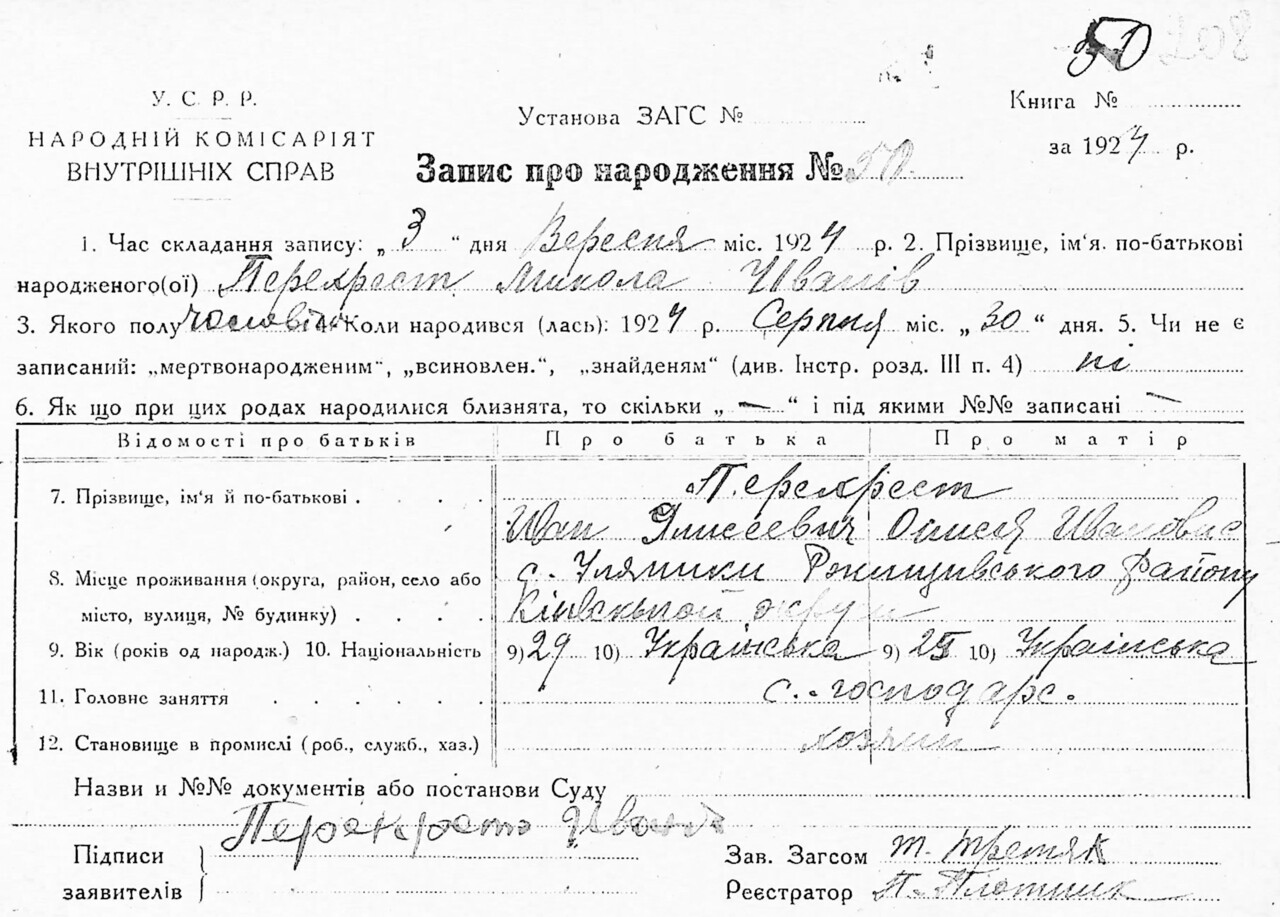 50
У. С. Р. Р.
НАРОДНІЙ КОМІСАРІЯТ
ВНУТРІШНІХ СПРАВ
Установа ЗАГС №
Книга №
за 1924 р.
Запис про народження № 50.
1. Час складання запису: „ 3 “ дня Вересня міс. 1924 р. 2. Прізвище, ім‘я. по-батькові
народженого(ої) Перехрест Микола Иванів
3. Якого полу чоловічи 4. Коли народився (лась): 1924 р. Серпня міс. „ 30 “ дня. 5. Чи не є
записаний: „мертвонародженим“, „всиновлен.“, „знайденям“ (див. Інстр. розд. III п. 4) ні
6. Як що при цих родах народилися близнята, то скільки „ — “ і під якими №№ записані —
Відомості про батьків Про батька Про матір
7. Прізвище, ім‘я й по-батькові . . . . Перехрест
Иван Элисеевич Онисея Ивановна
8. Місце проживання (округа, район, село або с. Уляники Ржищівського району
місто, вулиця, № будинку) . . . . Київської округи
9. Вік (років од народж.) 10. Національність 9) 29 10) Українська 9) 25 10) Українська
11. Головне заняття . . . . . . с. господарс.
12. Становище в промислі (роб., служб., хаз.) хозяин
Назви и №№ документів або постанови Суду
Перекрест Иван
Підписи
заявителів
Зав. Загсом Т. Третяк
Реєстратор П. Плотник